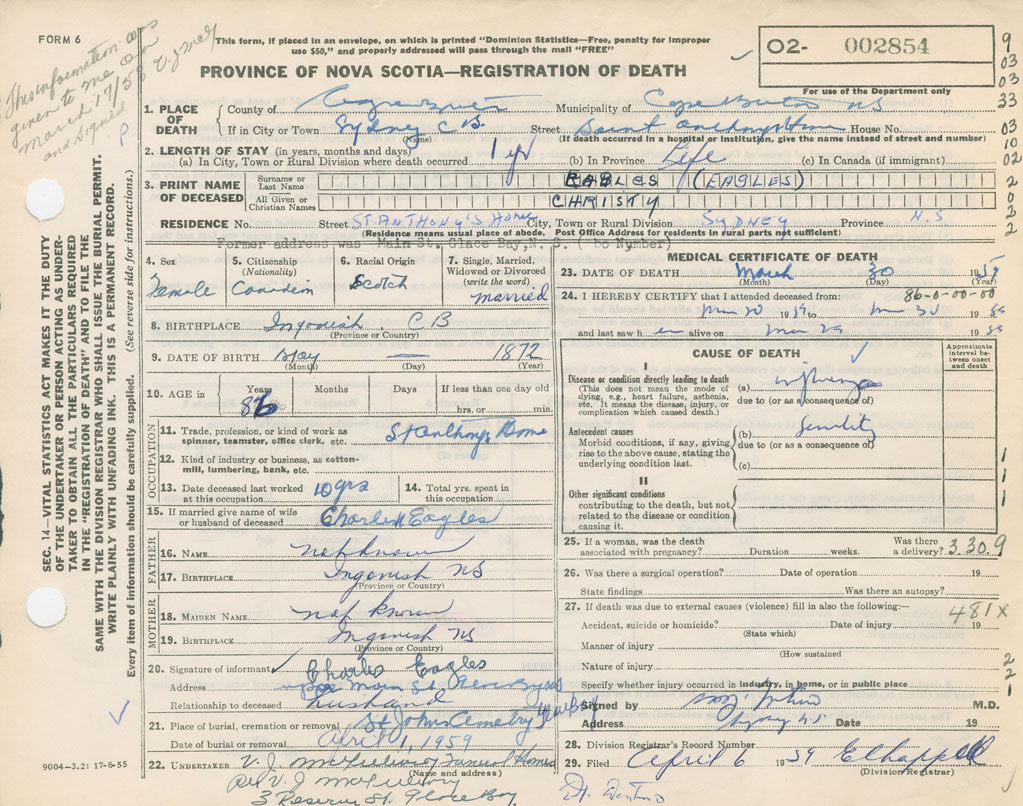 FORM 6
This form, if placed in an envelope, on which is printed "Dominion Statistics—Free, penalty for improper
use $50," and properly addressed will pass through the mail "FREE"
PROVINCE OF NOVA SCOTIA—REGISTRATION OF DEATH
O2- 002854
For use of the Department only
This information was
given to me on
March 17/58
and signed
V. J. McG
P
9
03
03
33
03
10
02
2
0
2
2
1. PLACE OF DEATH
County of Cape Breton Municipality of Cape Breton NS
If in City or Town Sydney C B. Street Saint Anthonys Home House No.
(Name) (If death occurred in a hospital or institution, give the name instead of street and number)
2. LENGTH OF STAY (in years, months and days)
(a) In City, Town or Rural Division where death occurred 1 yr (b) In Province Life (c) In Canada (if immigrant)
3. PRINT NAME OF DECEASED
Surname or Last Name EAGLES (EAGLES)
All Given or Christian Names CHRISTY
RESIDENCE No. Street ST ANTHONY'S HOME City, Town or Rural Division SYDNEY Province N.S
(Residence means usual place of abode. Post Office Address for residents in rural parts not sufficient)
Former address was Main St. Glace Bay, N. S. ( bo Number)
4. Sex
Female
5. Citizenship
(Nationality)
Canadian
6. Racial Origin
Scotch
7. Single, Married,
Widowed or Divorced
(write the word)
married
8. BIRTHPLACE Ingonish. C B
(Province or Country)
9. DATE OF BIRTH May — 1872
(Month) (Day) (Year)
10. AGE in
Years Months Days If less than one day old
86 hrs. or min.
OCCUPATION
11. Trade, profession, or kind of work as
spinner, teamster, office clerk, etc. St Anthonys Home
12. Kind of industry or business, as cotton-
mill, lumbering, bank, etc.
13. Date deceased last worked
at this occupation 10 yrs
14. Total yrs. spent in
this occupation
15. If married give name of wife
or husband of deceased Charles H Eagles
FATHER
16. NAME not known
17. BIRTHPLACE Ingonish NS
(Province or Country)
MOTHER
18. MAIDEN NAME not known
19. BIRTHPLACE Ingonish NS
(Province or Country)
20. Signature of informant Charles Eagles
Address Main St. Glace Bay
Relationship to deceased husband
21. Place of burial, cremation or removal St Johns Cemetry Glace Bay
Date of burial or removal April 1, 1959
22. UNDERTAKER V. J. McGillivray Funeral Home
(Name and address)
Per V. J. McGillivray
3 Reserve St. Glace Bay
9004—3.2: 17-6-55
MEDICAL CERTIFICATE OF DEATH
23. DATE OF DEATH March 30 1959
(Month) (Day) (Year)
24. I HEREBY CERTIFY that I attended deceased from: 86-0-00-00
Mar 20 1959 to Mar 30 1959
and last saw h er alive on Mar 29 1959
CAUSE OF DEATH
Approximate
interval be-
tween onset
and death
I
Disease or condition directly leading to death
(This does not mean the mode of
dying, e.g., heart failure, asthenia,
etc. It means the disease, injury, or
complication which caused death.)
(a) influenza
due to (or as a consequence of)
Antecedent causes
Morbid conditions, if any, giving
rise to the above cause, stating the
underlying condition last.
(b) senility
due to (or as a consequence of)
(c)
II
Other significant conditions
contributing to the death, but not
related to the disease or condition
causing it.
1
1
1
25. If a woman, was the death
associated with pregnancy? Duration weeks. Was there
a delivery? 3.30.9
26. Was there a surgical operation? Date of operation 19
State findings Was there an autopsy?
27. If death was due to external causes (violence) fill in also the following:— 481x
Accident, suicide or homicide? Date of injury 19
(State which)
Manner of injury
(How sustained
Nature of injury
Specify whether injury occurred in industry, in home, or in public place
2
2
1
Signed by M.D.
Address Sydney NS Date 19
28. Division Registrar's Record Number
29. Filed April 6 1959 E Chappell
(Division Registrar)
SEC. 14—VITAL STATISTICS ACT MAKES IT THE DUTY
OF THE UNDERTAKER OR PERSON ACTING AS UNDER-
TAKER TO OBTAIN ALL THE PARTICULARS REQUIRED
IN THE "REGISTRATION OF DEATH" AND TO FILE THE
SAME WITH THE DIVISION REGISTRAR WHO SHALL ISSUE THE BURIAL PERMIT.
WRITE PLAINLY WITH UNFADING INK. THIS IS A PERMANENT RECORD.
Every item of information should be carefully supplied. (See reverse side for instructions.)